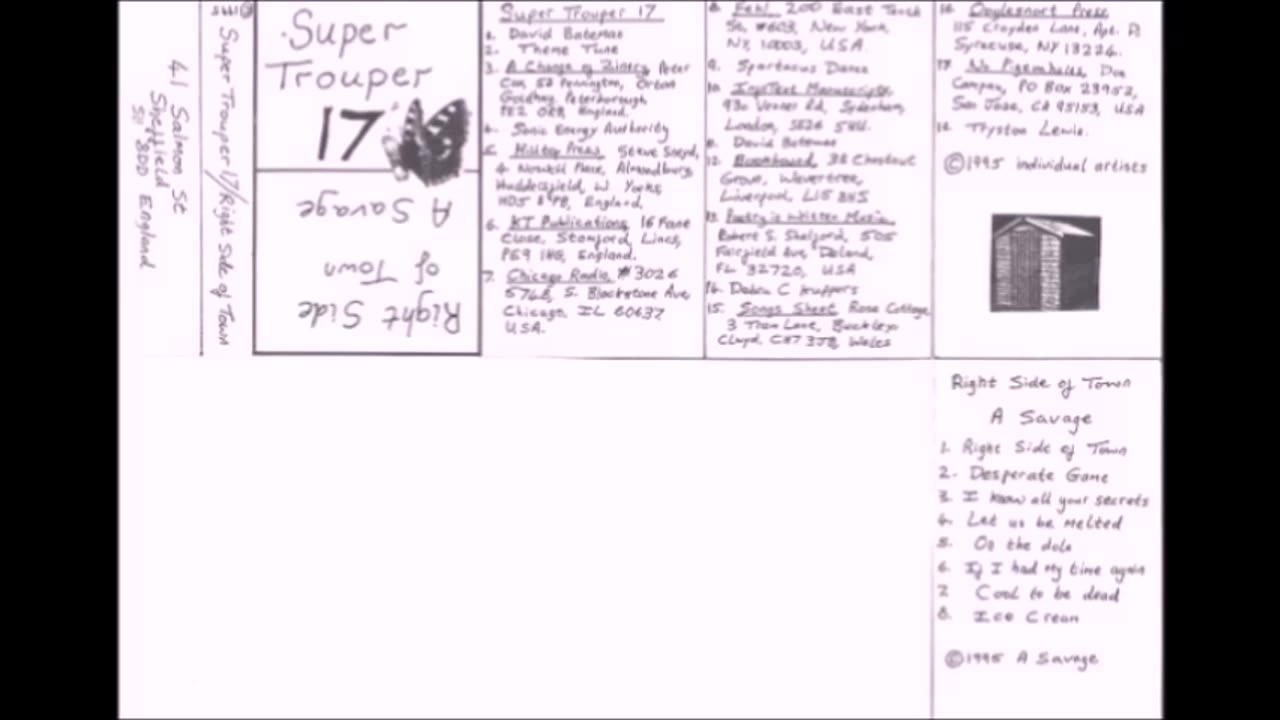 41 Salmon St
Sheffield
S11 8DD England
Super Trouper 17/Right Side of Town
Super
Trouper
17
Right Side
of Town
A Savage
Super Trouper 17
1. David Bateman
2. Theme Tune
3. A Change of Peter
Cox, 58 Pennington, Orton
Goldhay, Peterborough
PE2 0RB, England.
4. Sonic Energy Authority
5. Hilltop Press, Steve Sneyd,
4 Nowell Place, Almondbury
Huddersfield, W. Yorks,
HD5 8PB, England.
6. KT Publications, 16 Fane
Close, Stamford, Lincs,
PE9 1HG, England.
7. Chicago Radio, #3026
5746, S. Blackstone Ave
Chicago, IL 60637
USA.
8. Feh! 200 East Tenth
St, #603, New York,
NY, 10003, USA
9. Spartacus Dance
10. Manuscripts,
930 Verner Rd, Sydenham,
London, SE26
11. David Bateman
12. 38 Chestnut
Grove, Wavertree,
Liverpool, L15 8HS
13. Poetry is Written Music,
Robert S. Shelford, 505
Fairfield Ave, Deland,
FL 32720, USA
14. C
15. Songs Sheet Rose Cottage
3 Tram Lane, Buckley
Clwyd, CH7 3JB Wales
16. Doylesnort Press
115 Croyden Lane, Apt. D
Syracuse, NY 13224.
17. No Pigeonholes, Don
Campau, PO Box 23952,
San Jose, CA 95153, USA
18. Thyston Lewis.
©1995 individual artists
Right Side of Town
A Savage
1. Right Side of Town
2. Desperate Game
3. I know all your secrets
4. Let us be melted
5. On the dole
6. If I had my time again
7 Cool to be dead
8. Ice Cream
©1995 A Savage